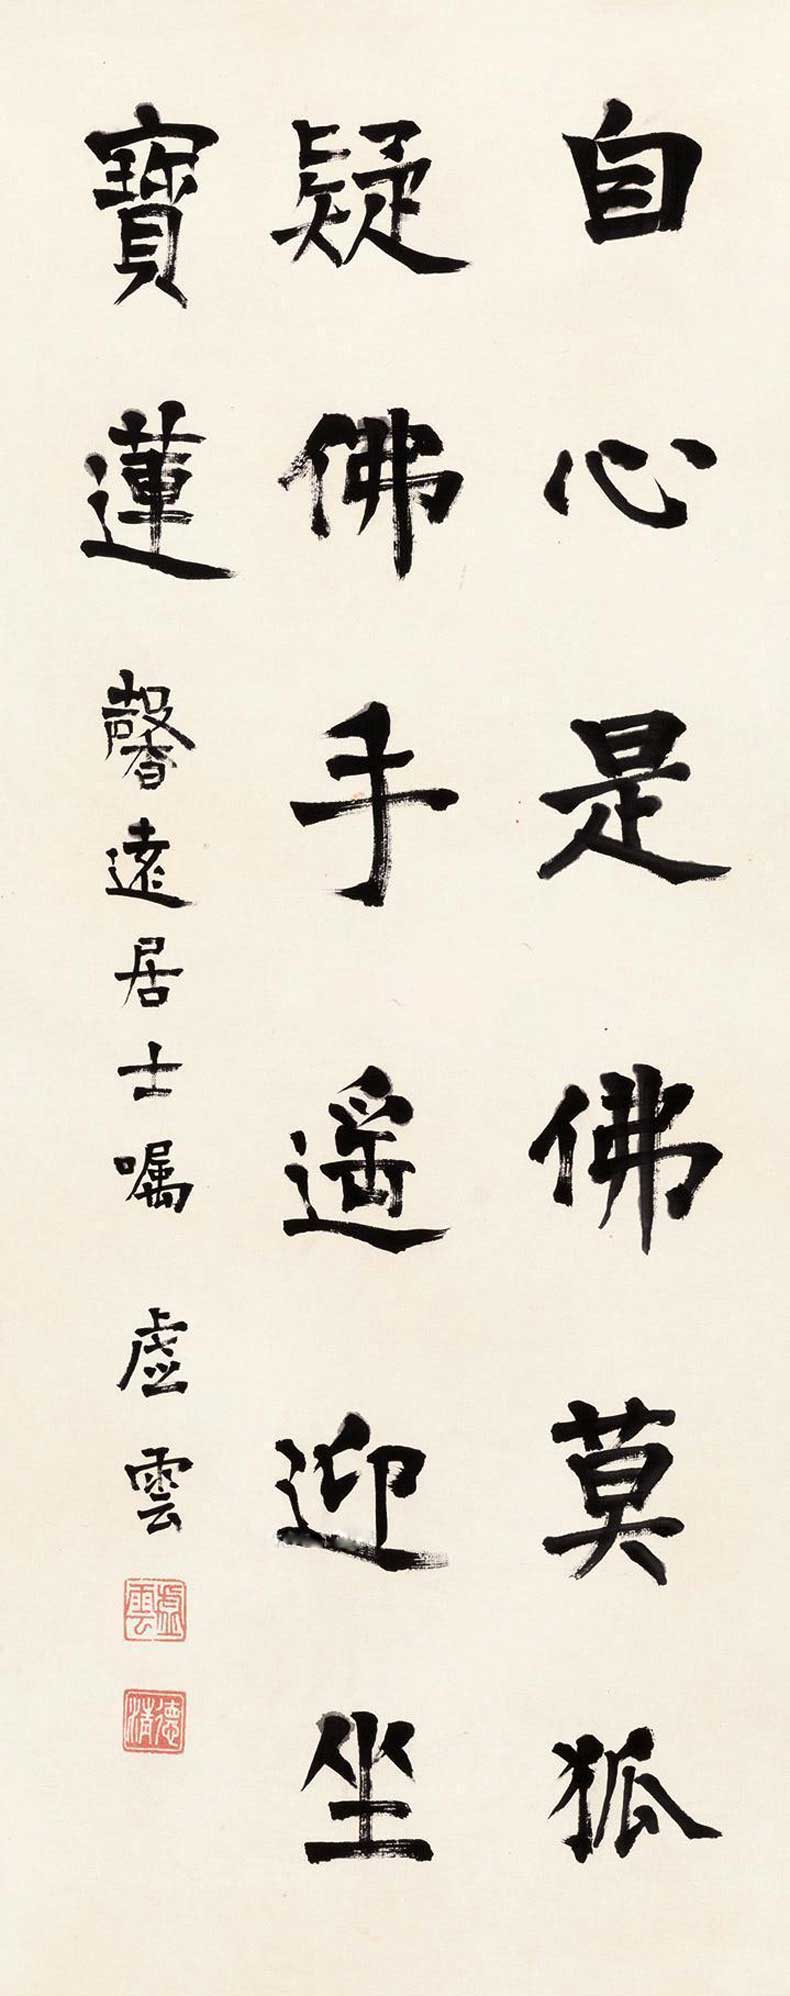 自心是佛莫狐
疑佛手遥迎坐
寶蓮 馨遠居士囑 虛雲
虛雲
德清